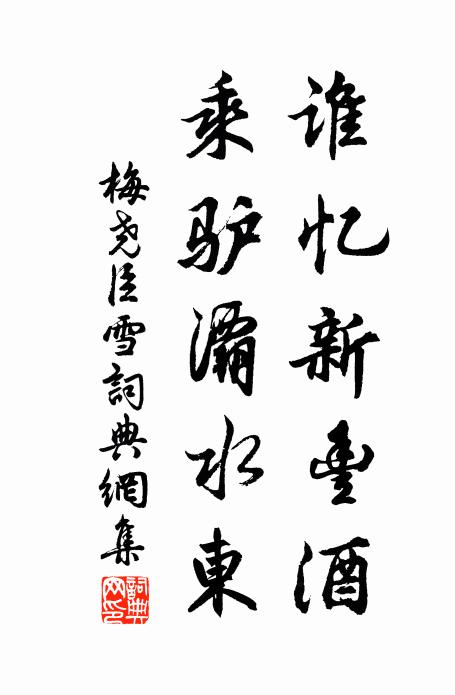 谁忆新豐酒
乘驴灞水東
梅尧臣雪詞典網集
詞典網印